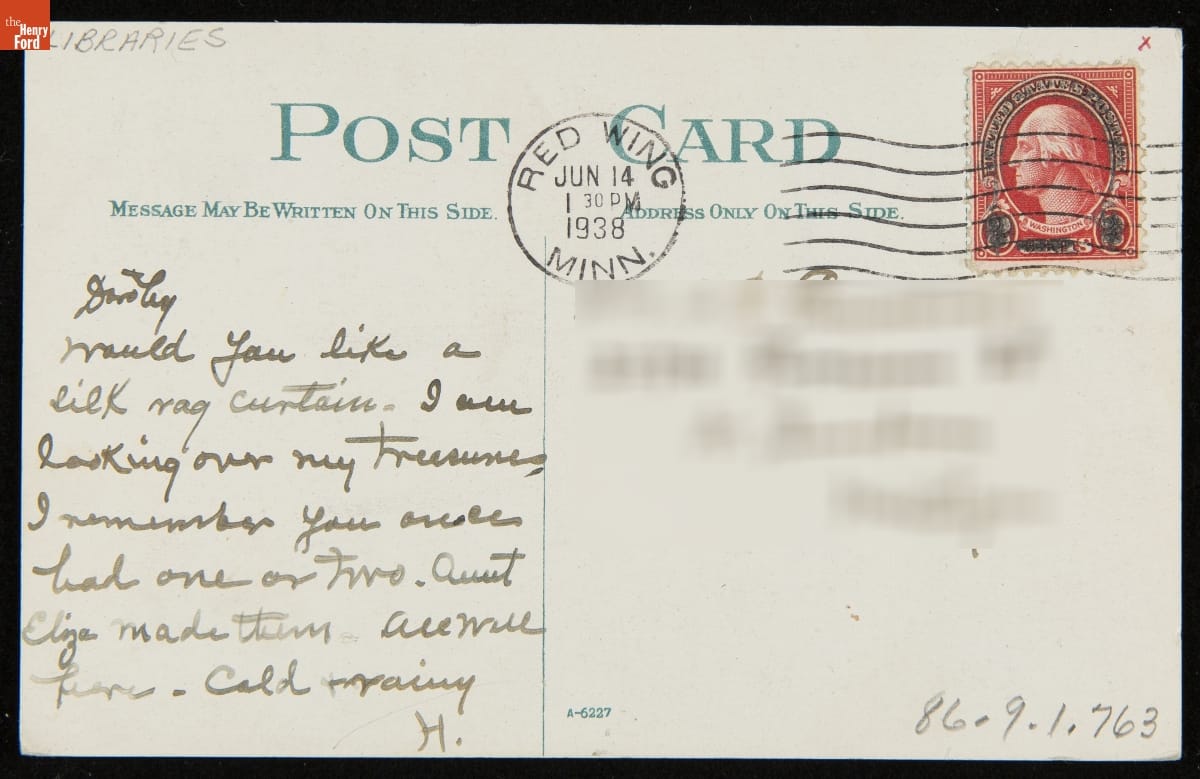 the
Henry
Ford
LIBRARIES
x
POST CARD
MESSAGE MAY BE WRITTEN ON THIS SIDE.
ADDRESS ONLY ON THIS SIDE.
RED WING
JUN 14
1 30 PM
1938
MINN.
UNITED STATES POSTAGE
WASHINGTON
CENTS
Dorothy
would you like a
silk rag curtain. I am
looking over my treasures
I remember you once
had one or two. Aunt
Eliza made them. All well
here - Cold & rainy
H.
A-6227
86.9.1.763